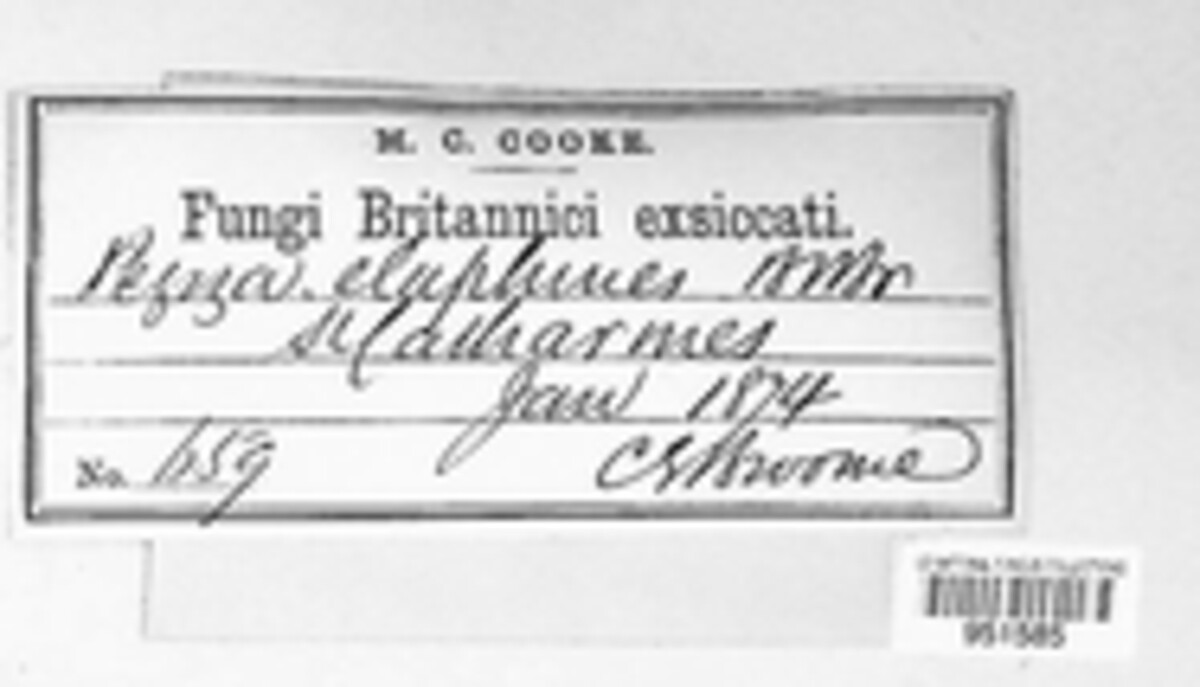 M. C. COOKE.
Fungi Britannici exsiccati.
Peziza. elaphines B&Br
St Catharines
Jan 1874
No. 659
C E Broome
951585